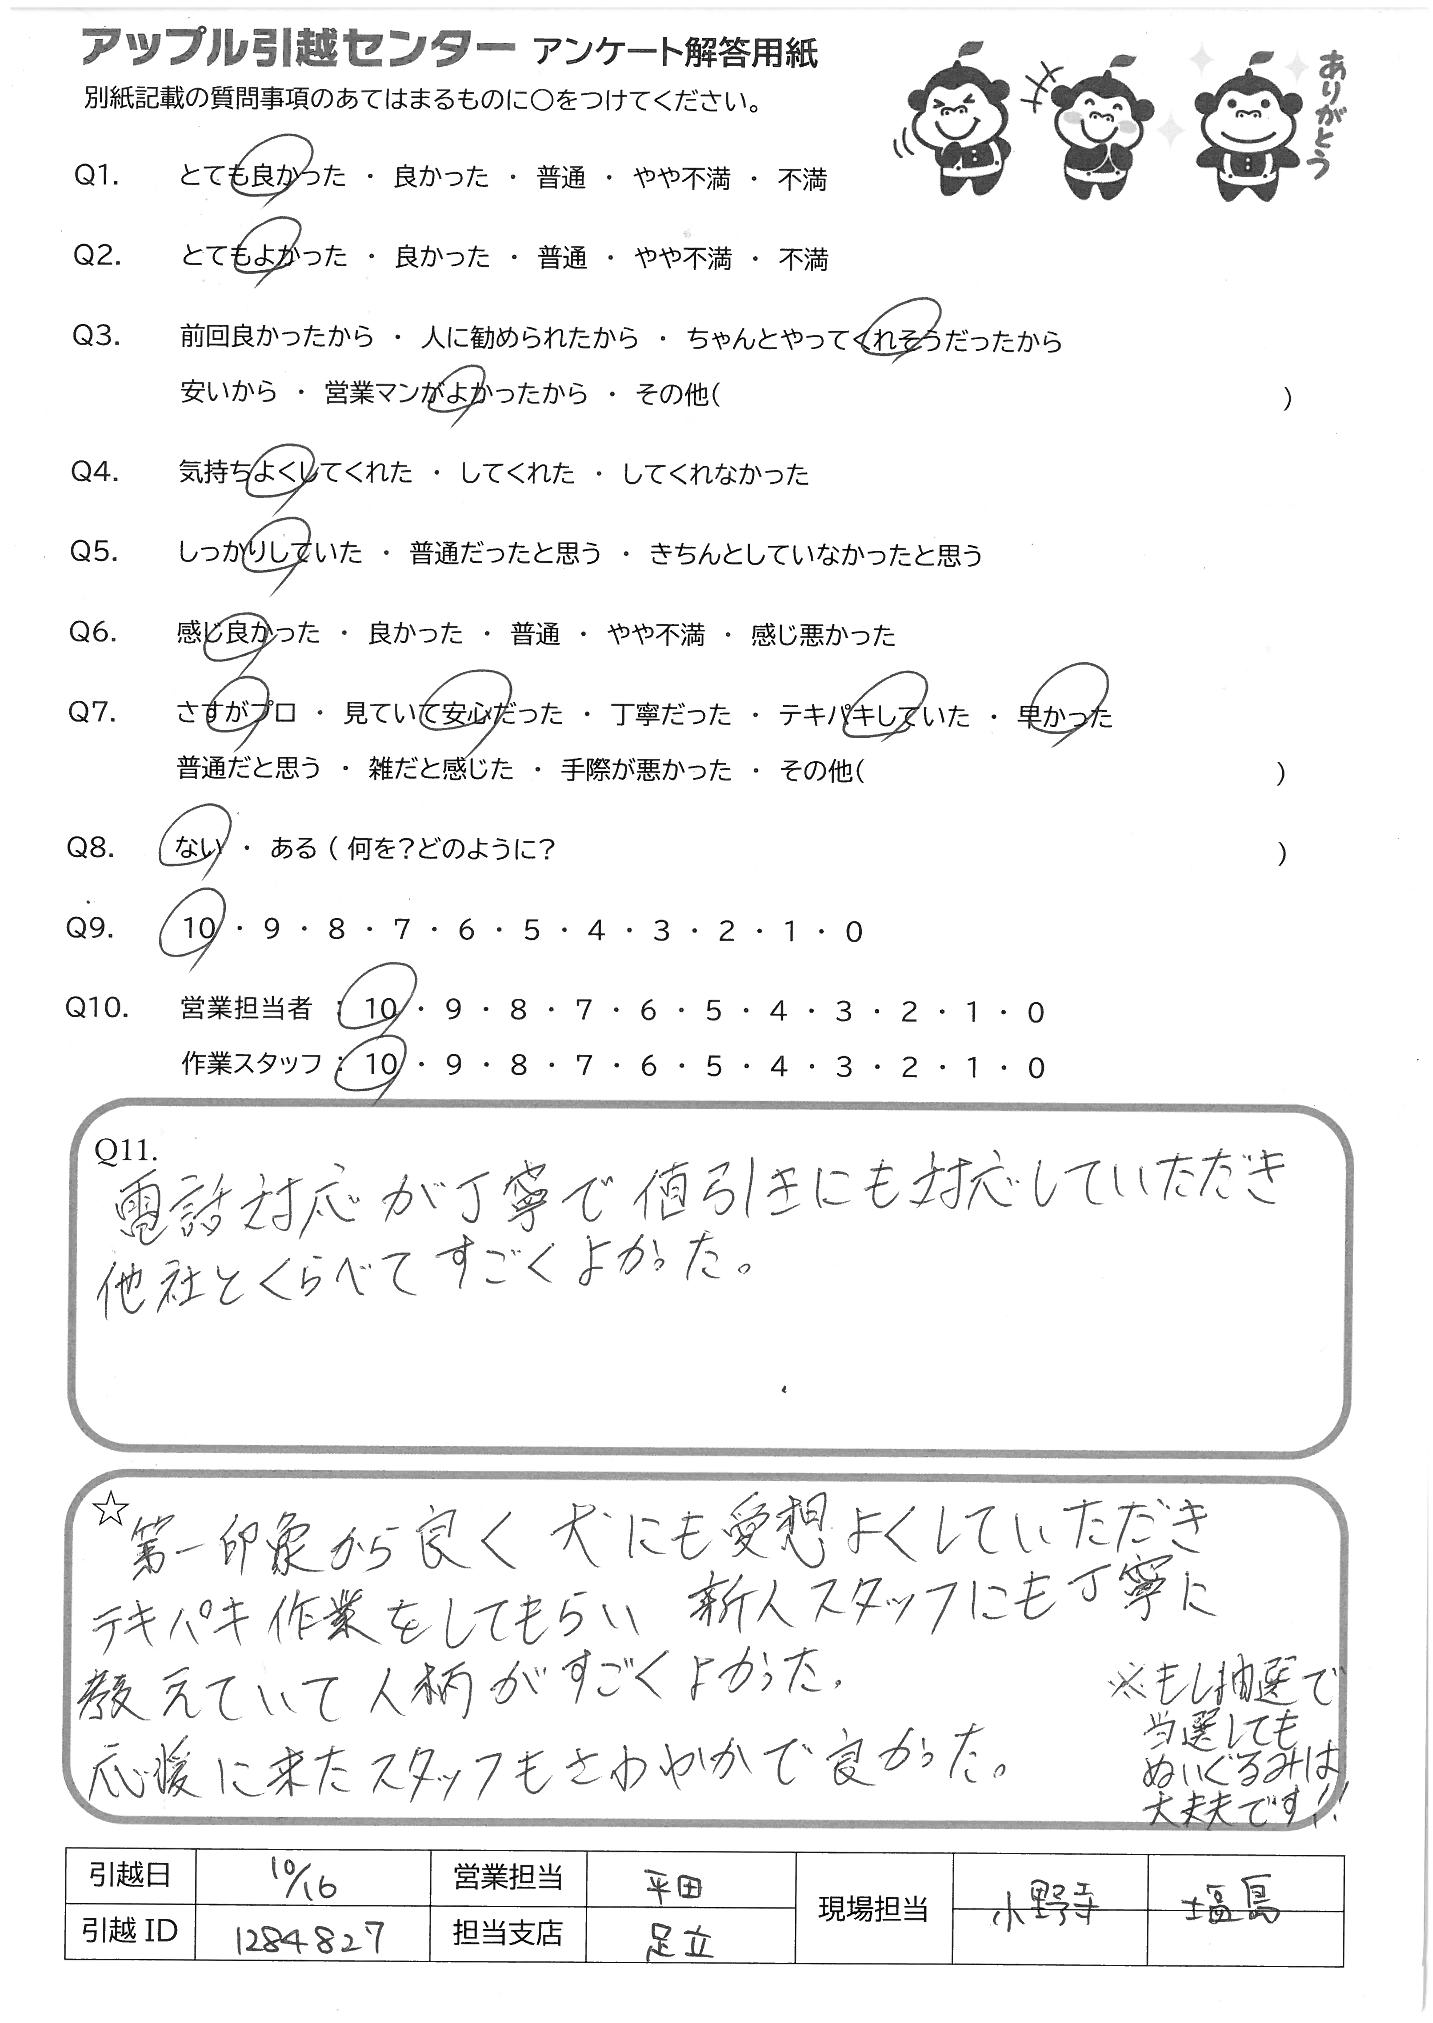 アップル引越センター アンケート解答用紙
別紙記載の質問事項のあてはまるものに〇をつけてください。
ありがとう
Q1. とても良かった ・ 良かった ・ 普通 ・ やや不満 ・ 不満
Q2. とてもよかった ・ 良かった ・ 普通 ・ やや不満 ・ 不満
Q3. 前回良かったから ・ 人に勧められたから ・ ちゃんとやってくれそうだったから
安いから ・ 営業マンがよかったから ・ その他( )
Q4. 気持ちよくしてくれた ・ してくれた ・ してくれなかった
Q5. しっかりしていた ・ 普通だったと思う ・ きちんとしていなかったと思う
Q6. 感じ良かった ・ 良かった ・ 普通 ・ やや不満 ・ 感じ悪かった
Q7. さすがプロ ・ 見ていて安心だった ・ 丁寧だった ・ テキパキしていた ・ 早かった
普通だと思う ・ 雑だと感じた ・ 手際が悪かった ・ その他( )
Q8. ない ・ ある ( 何を?どのように? )
Q9. 10 ・ 9 ・ 8 ・ 7 ・ 6 ・ 5 ・ 4 ・ 3 ・ 2 ・ 1 ・ 0
Q10. 営業担当者 : 10 ・ 9 ・ 8 ・ 7 ・ 6 ・ 5 ・ 4 ・ 3 ・ 2 ・ 1 ・ 0
作業スタッフ : 10 ・ 9 ・ 8 ・ 7 ・ 6 ・ 5 ・ 4 ・ 3 ・ 2 ・ 1 ・ 0
Q11.
電話対応が丁寧で値引きにも対応していただき
他社とくらべてすごくよかった。
☆
第一印象から良く犬にも愛想よくしていただき
テキパキ作業をしてもらい 新人スタッフにも丁寧に
教えていて人柄がすごくよかった。
応援に来たスタッフもさわやかで良かった。
※もし抽選で
当選しても
ぬいぐるみは
大丈夫です!!
引越日 10/16 営業担当 平田 現場担当 小野寺 塩島
引越 ID 1284827 担当支店 足立